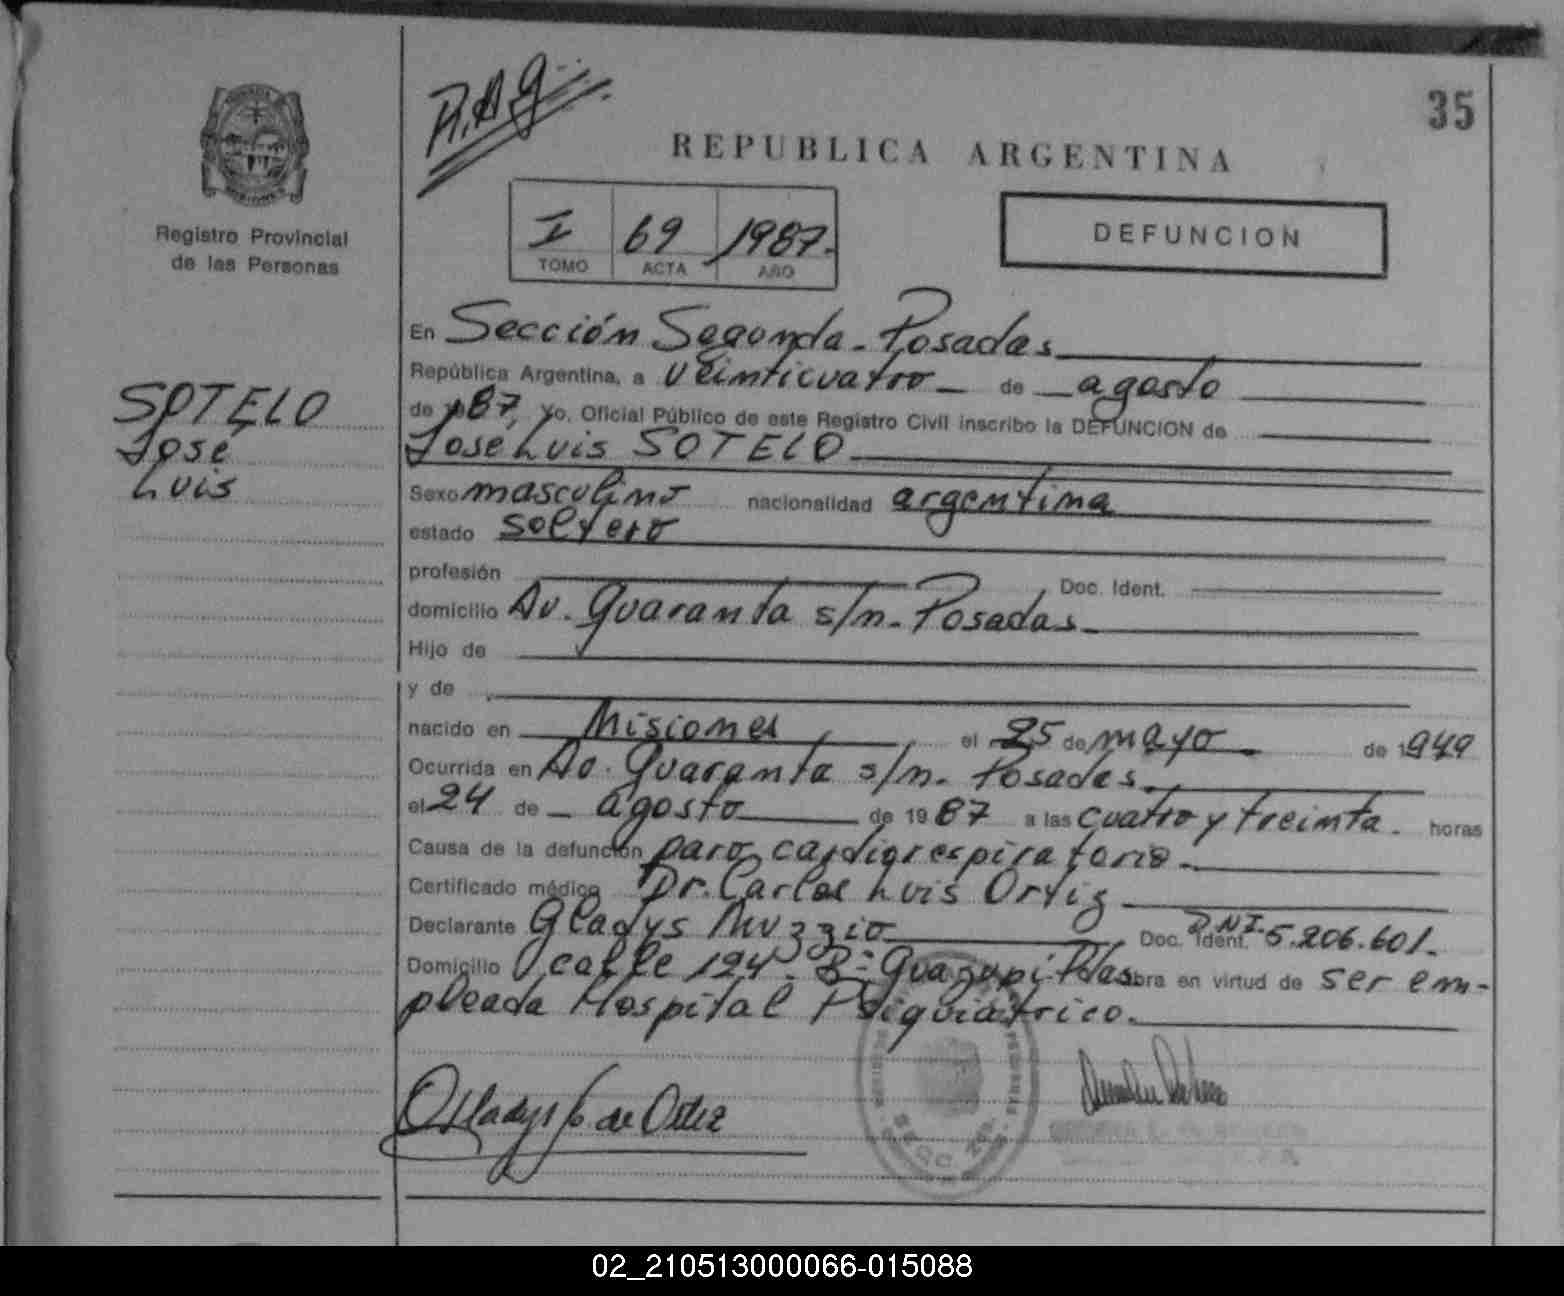 R.A.G.
35
REPUBLICA ARGENTINA
Registro Provincial
de las Personas
I 69 1987.
TOMO ACTA AÑO
DEFUNCION
SOTELO
José
Luis
En Sección Segunda - Posadas
República Argentina, a veinticuatro de agosto
de 1987, Yo, Oficial Público de este Registro Civil inscribo la DEFUNCION de
José Luis SOTELO
Sexo masculino nacionalidad argentina
estado soltero
profesión Doc. Ident.
domicilio Av. Quaranta s/n. Posadas
Hijo de
y de
nacido en Misiones, el 25 de mayo de 1949
Ocurrida en Av. Quaranta s/n. Posadas
el 24 de agosto de 1987 a las cuatro y treinta. horas
Causa de la defunción paro cardiorespiratorio
Certificado médico Dr. Carlos Luis Ortiz
Declarante Gladys Muzzio Doc. Ident. D.N.I. 5.206.601.
Domicilio calle 124 - Bº Guazupi Pdas obra en virtud de ser em-
pleada Hospital Psiquiátrico.
SECC. 2da.
02_210513000066-015088